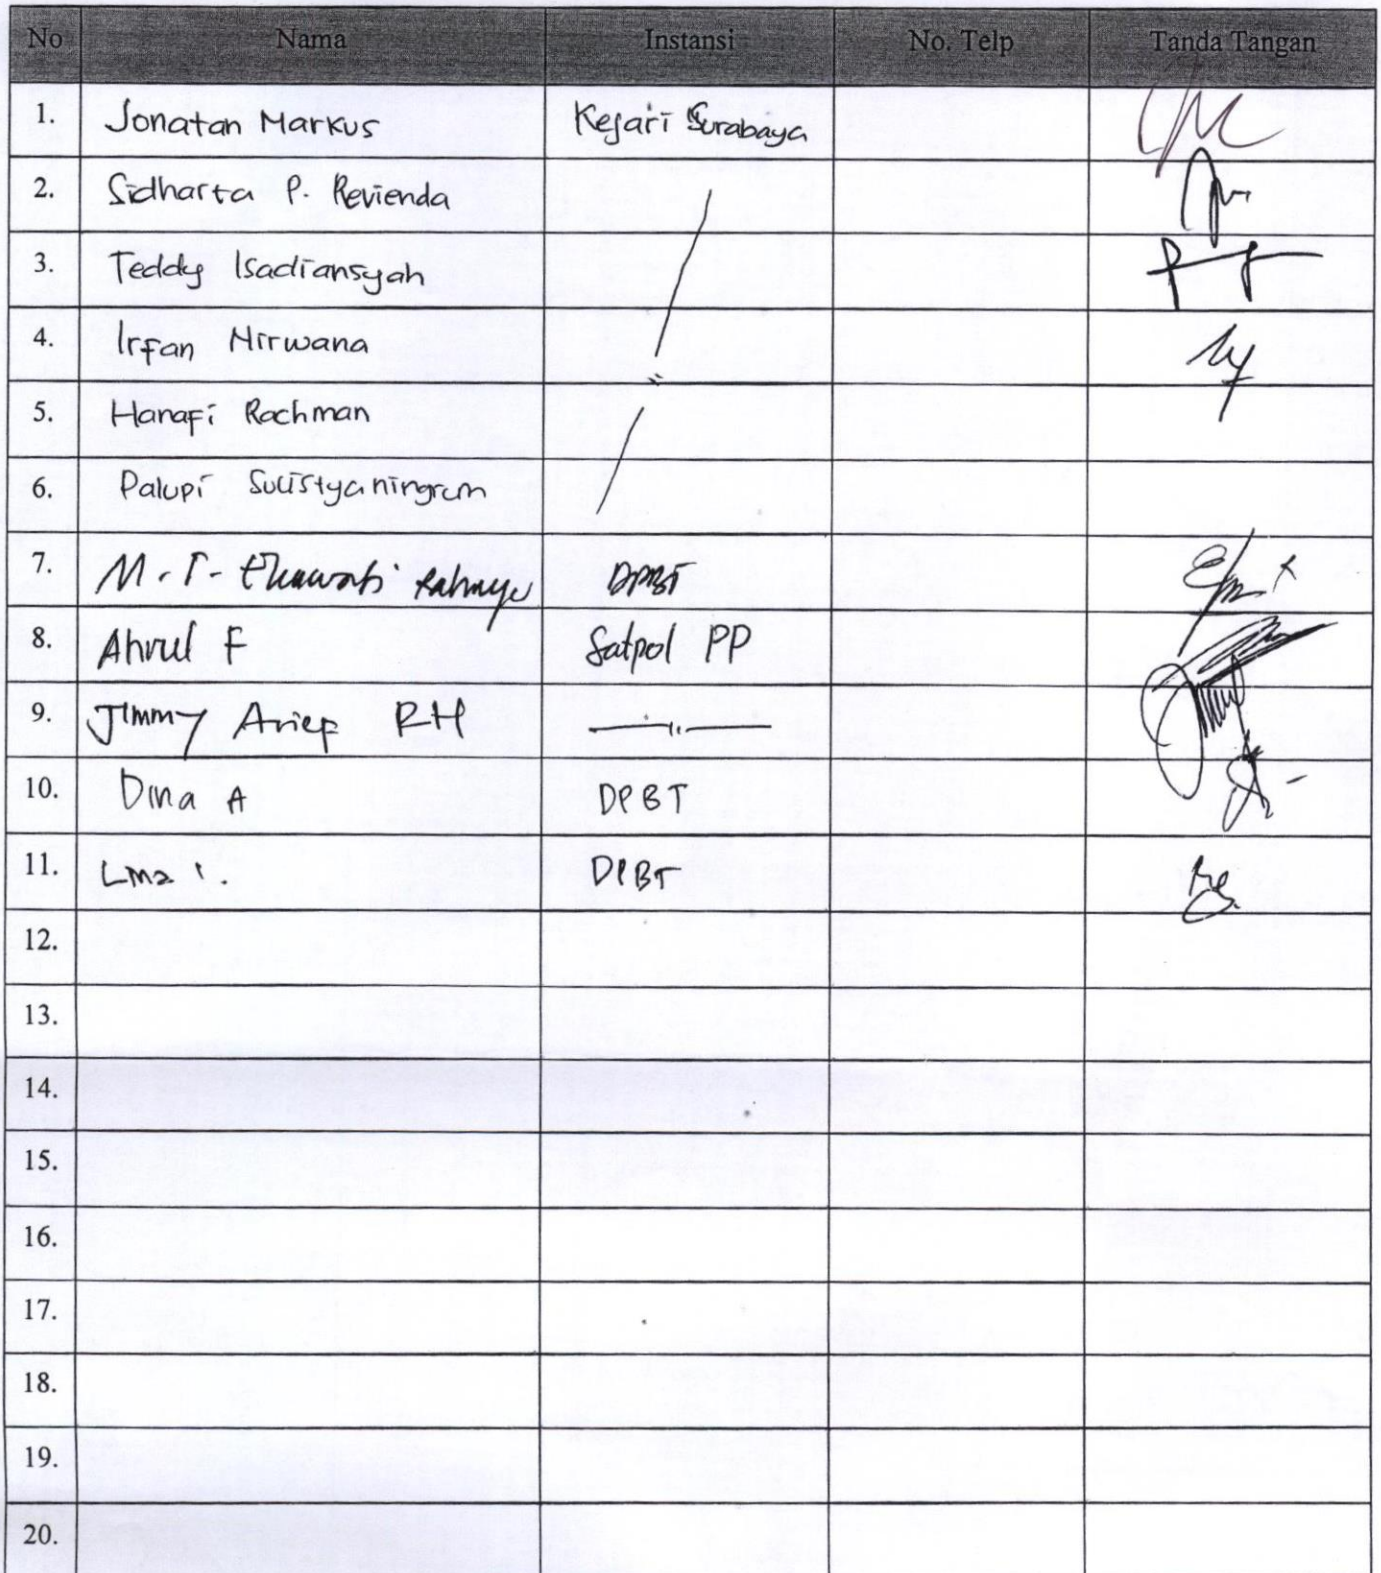 No Nama Instansi No. Telp Tanda Tangan
1. Jonatan Markus Kejari Surabaya
2. Sidharta P. Revienda
3. Teddy Isadiansyah
4. Irfan Nirwana
5. Hanafi Rachman
6. Palupi Sulistyaningrum
7. M. T. Ekawati Rahayu DPBT
8. Ahrul F Satpol PP
9. Jimmy Arief RH
10. Dina A DPBT
11. DPBT
12.
13.
14.
15.
16.
17.
18.
19.
20.